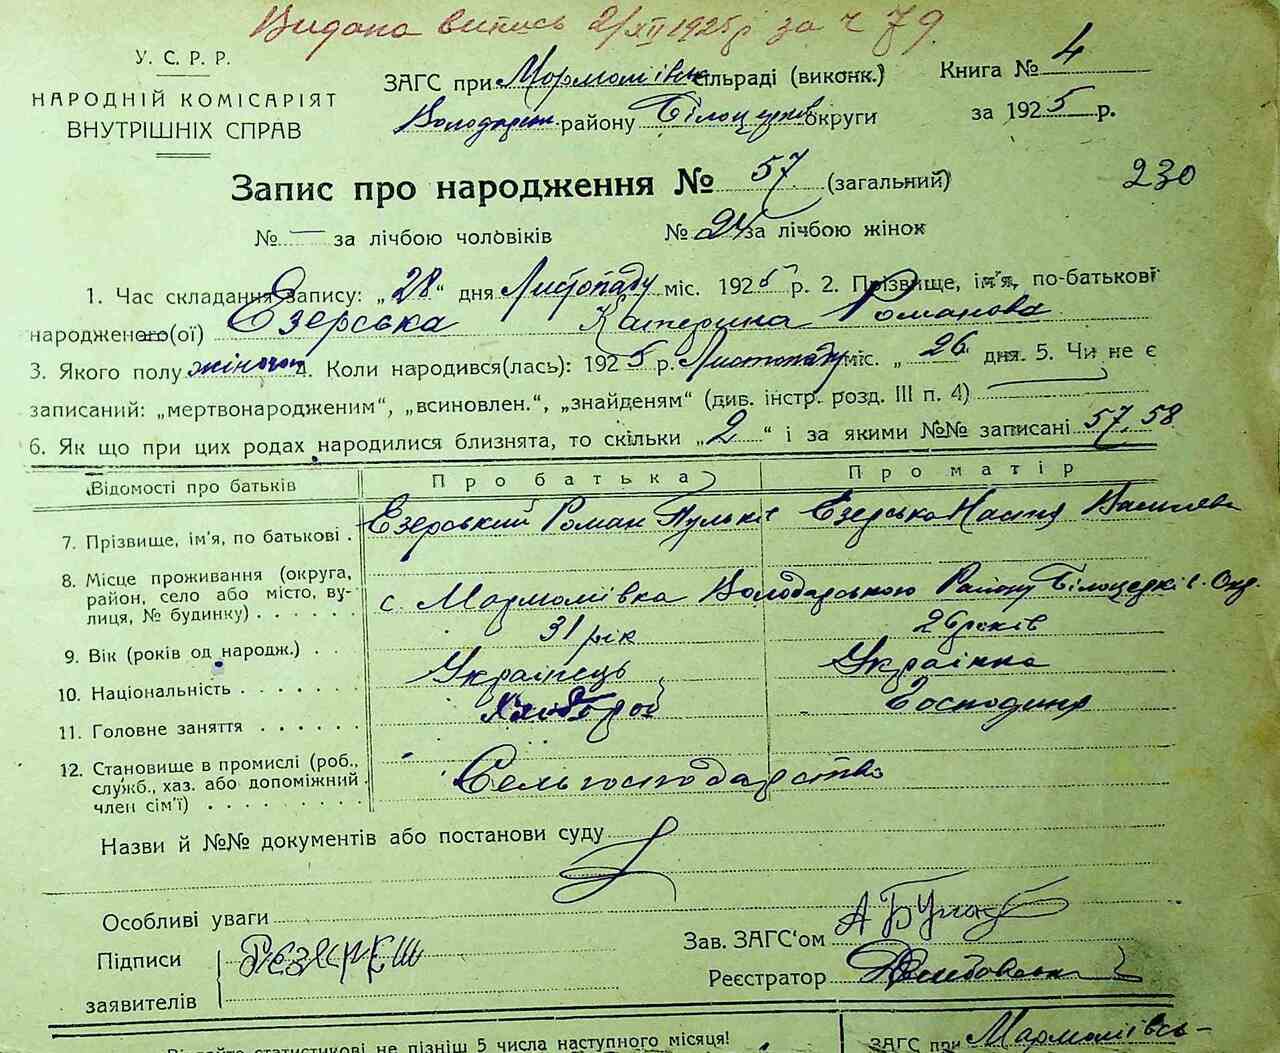 Видана випись 2/XII 1925 р за ч 79
У. С. Р. Р.
НАРОДНІЙ КОМІСАРІЯТ
ВНУТРІШНІХ СПРАВ
ЗАГС при Мармоліївськ сільраді (виконк.)
Володарськ району Білоцерків округи
Книга № 4
за 1925 р.
Запис про народження № 57 (загальний)
230
№ — за лічбою чоловіків № 24 за лічбою жінок
1. Час складання запису: „28“ дня Листопаду міс. 1925 р. 2. Прізвище, ім'я, по-батькові
народженого(ої) Езерська Катерина Романова
3. Якого полу жіночого 4. Коли народився(лась): 1925 р. Листопаду міс. „26“ дня. 5. Чи не є
записаний: „мертвонародженим“, „всиновлен.“, „знайденям“ (див. інстр. розд. III п. 4)
6. Як що при цих родах народилися близнята, то скільки „2“ і за якими №№ записані 57, 58
Відомості про батьків Про батька Про матір
7. Прізвище, ім'я, по батькові . Езерський Роман Езерська Настя Василева
8. Місце проживання (округа,
район, село або місто, ву-
лиця, № будинку) . . . . . . с. Мармоліївка Володарського Району
9. Вік (років од народж.) . . 31 рік 26 років
10. Національність . . . . . . . Українець Українка
11. Головне заняття . . . . . . Хлібороб Господиня
12. Становище в промислі (роб.,
служб., хаз. або допоміжний
член сім'ї) . . . . . . . . Сельгосподарство
Назви й №№ документів або постанови суду
Особливі уваги
Підписи
заявителів
Зав. ЗАГС'ом
Реєстратор
статистикові не пізніш 5 числа наступного місяця!
ЗАГС при Мармоліївсь-